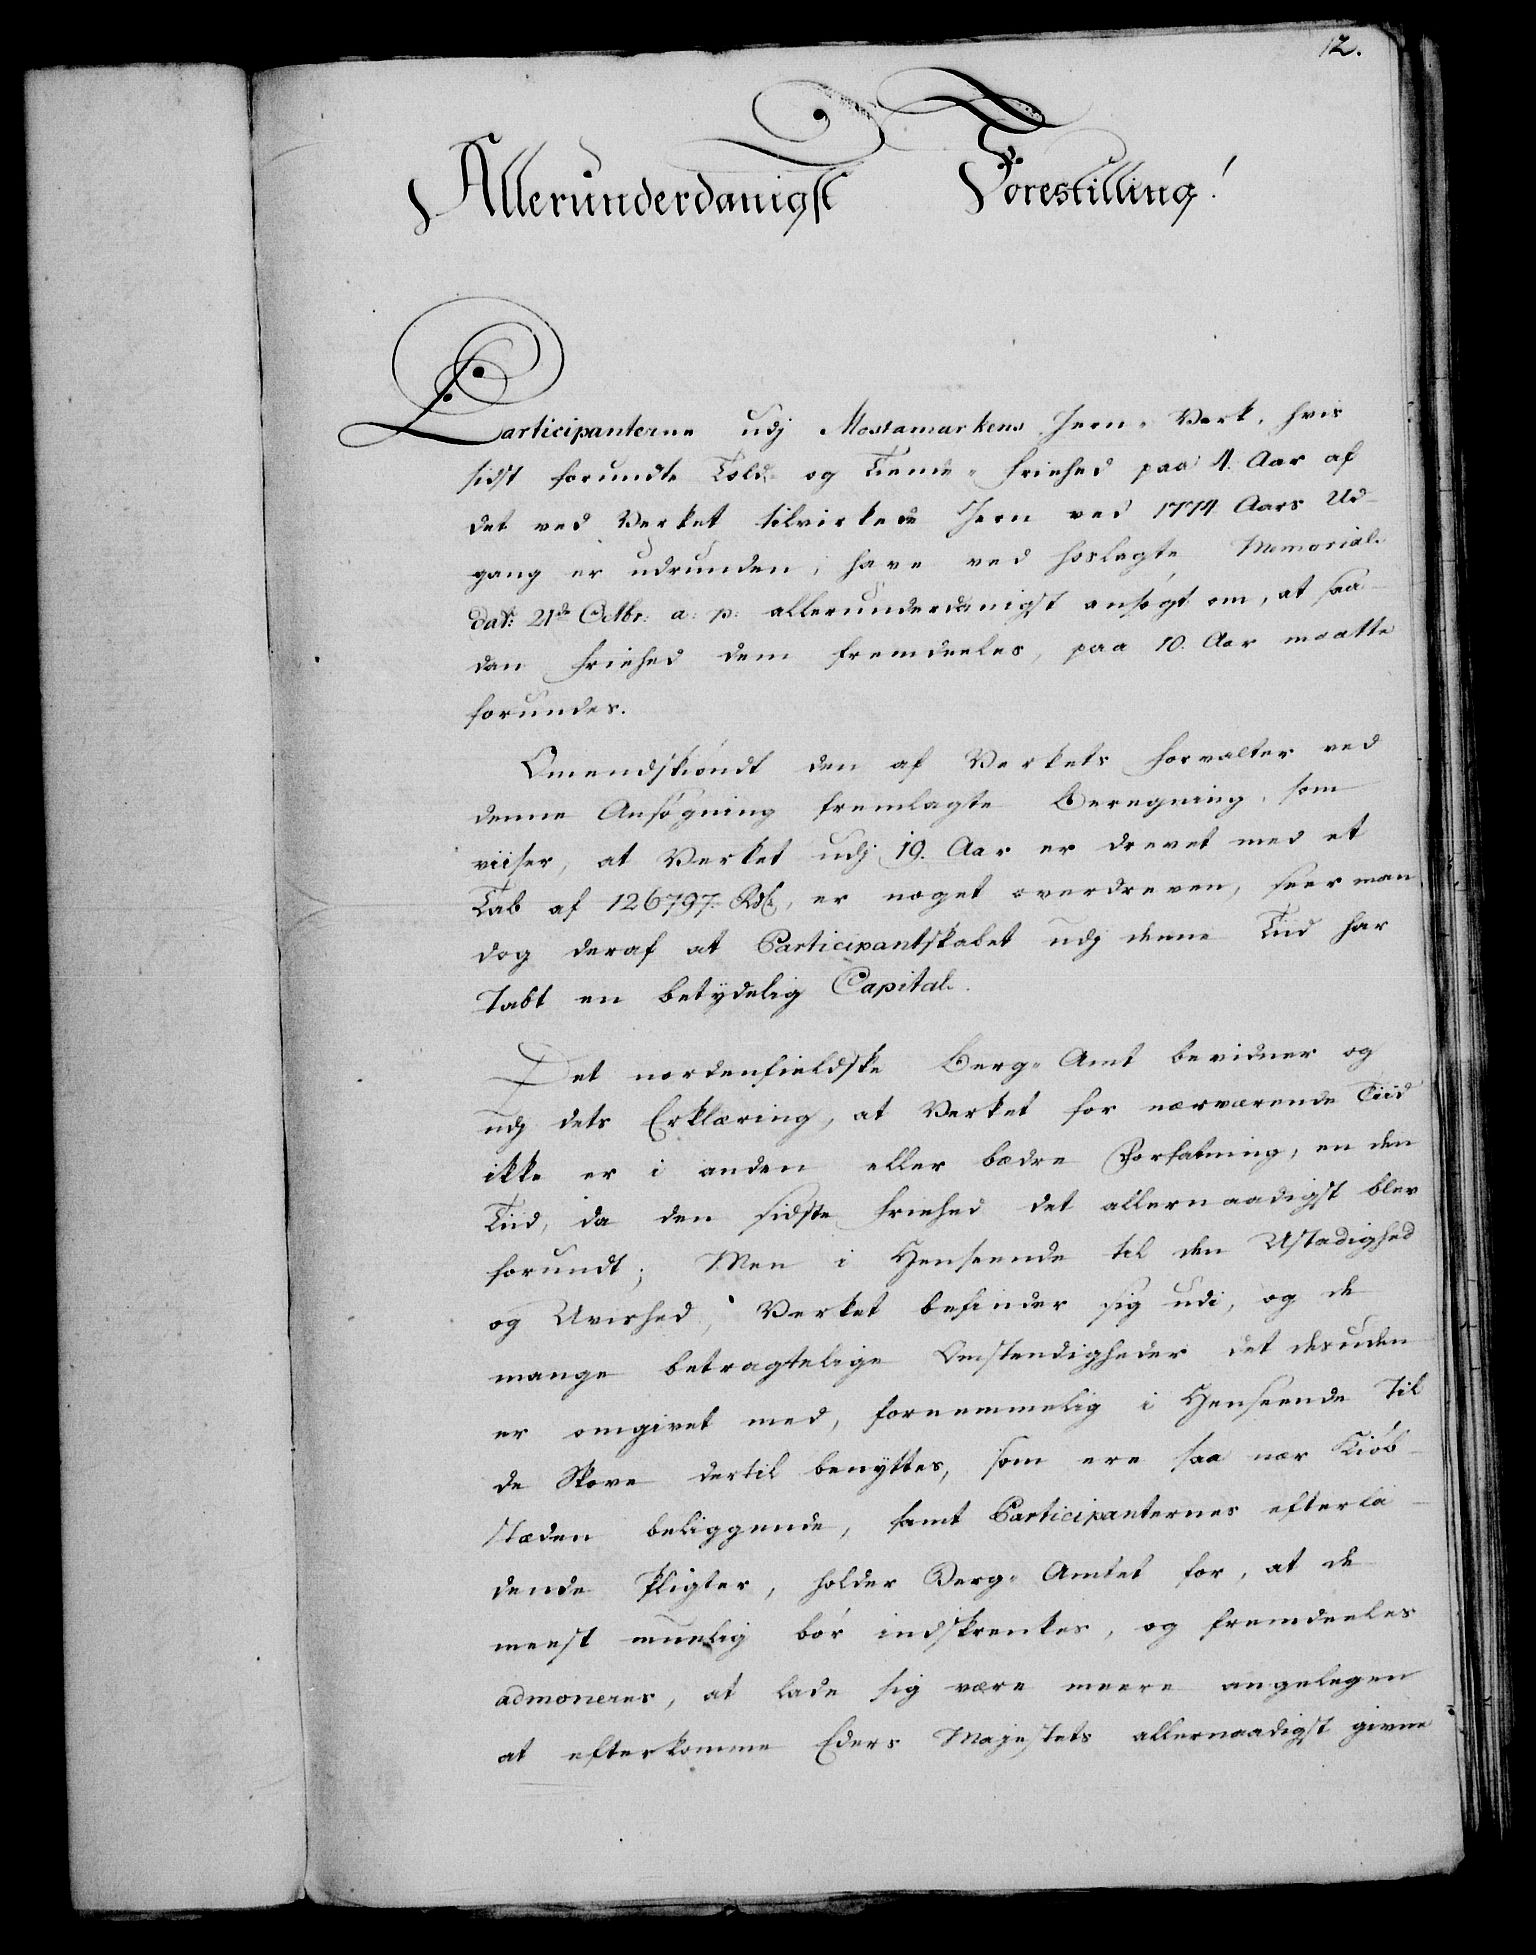 12.
Allerunderdanigst Forestilling!
Participanterne udj Mostamarkens Jern-Verk, hvis
sidst forundte Told- og Tiende-Friehed paa 4. Aar af
det ved Verket tilvirkede Jern ved 1774 Aars Ud-
gang er udrunden, have ved hoslagte Memorial
dat: 21de Octbr: a: p: allerunderdanigst ansøgt om, at saa-
dan Friehed dem fremdeeles, paa 10. Aar maatte
forundes.
Omendskiøndt den af Verkets Forvalter ved
denne Ansøgning fremlagte Beregning, som
viiser, at Verket udj 19. Aar er drevet med et
Tab af 126797 Rdlr, er noget overdreven, seer man
dog deraf at Participantskabet udj denne Tiid har
Tabt en betydelig Capital.
Det nordenfieldske Berg-Amt bevidner og
udj dets Erklæring, at Verket for nærværende Tiid
ikke er i anden eller bædre Forfatning, en den
Tiid, da den sidste Friehed det allernaadigst blev
forundt; Men i Henseende til den Ustadighed
og Uvished, Verket befinder sig udi, og de
mange betragtelige Omstendigheder det desuden
er omgivet med, fornemmelig i Henseende Til
de Skove dertil benyttes, som ere saa nær Kiøb-
stæden beliggende, samt Participanternes efterla-
dende Pligter, holder Berg-Amtet for, at de
meest muelig bør indskrenkes, og fremdeeles
admoneres, at lade sig være meere angelegen
at efterkomme Eders Majestets allernaadigst givne